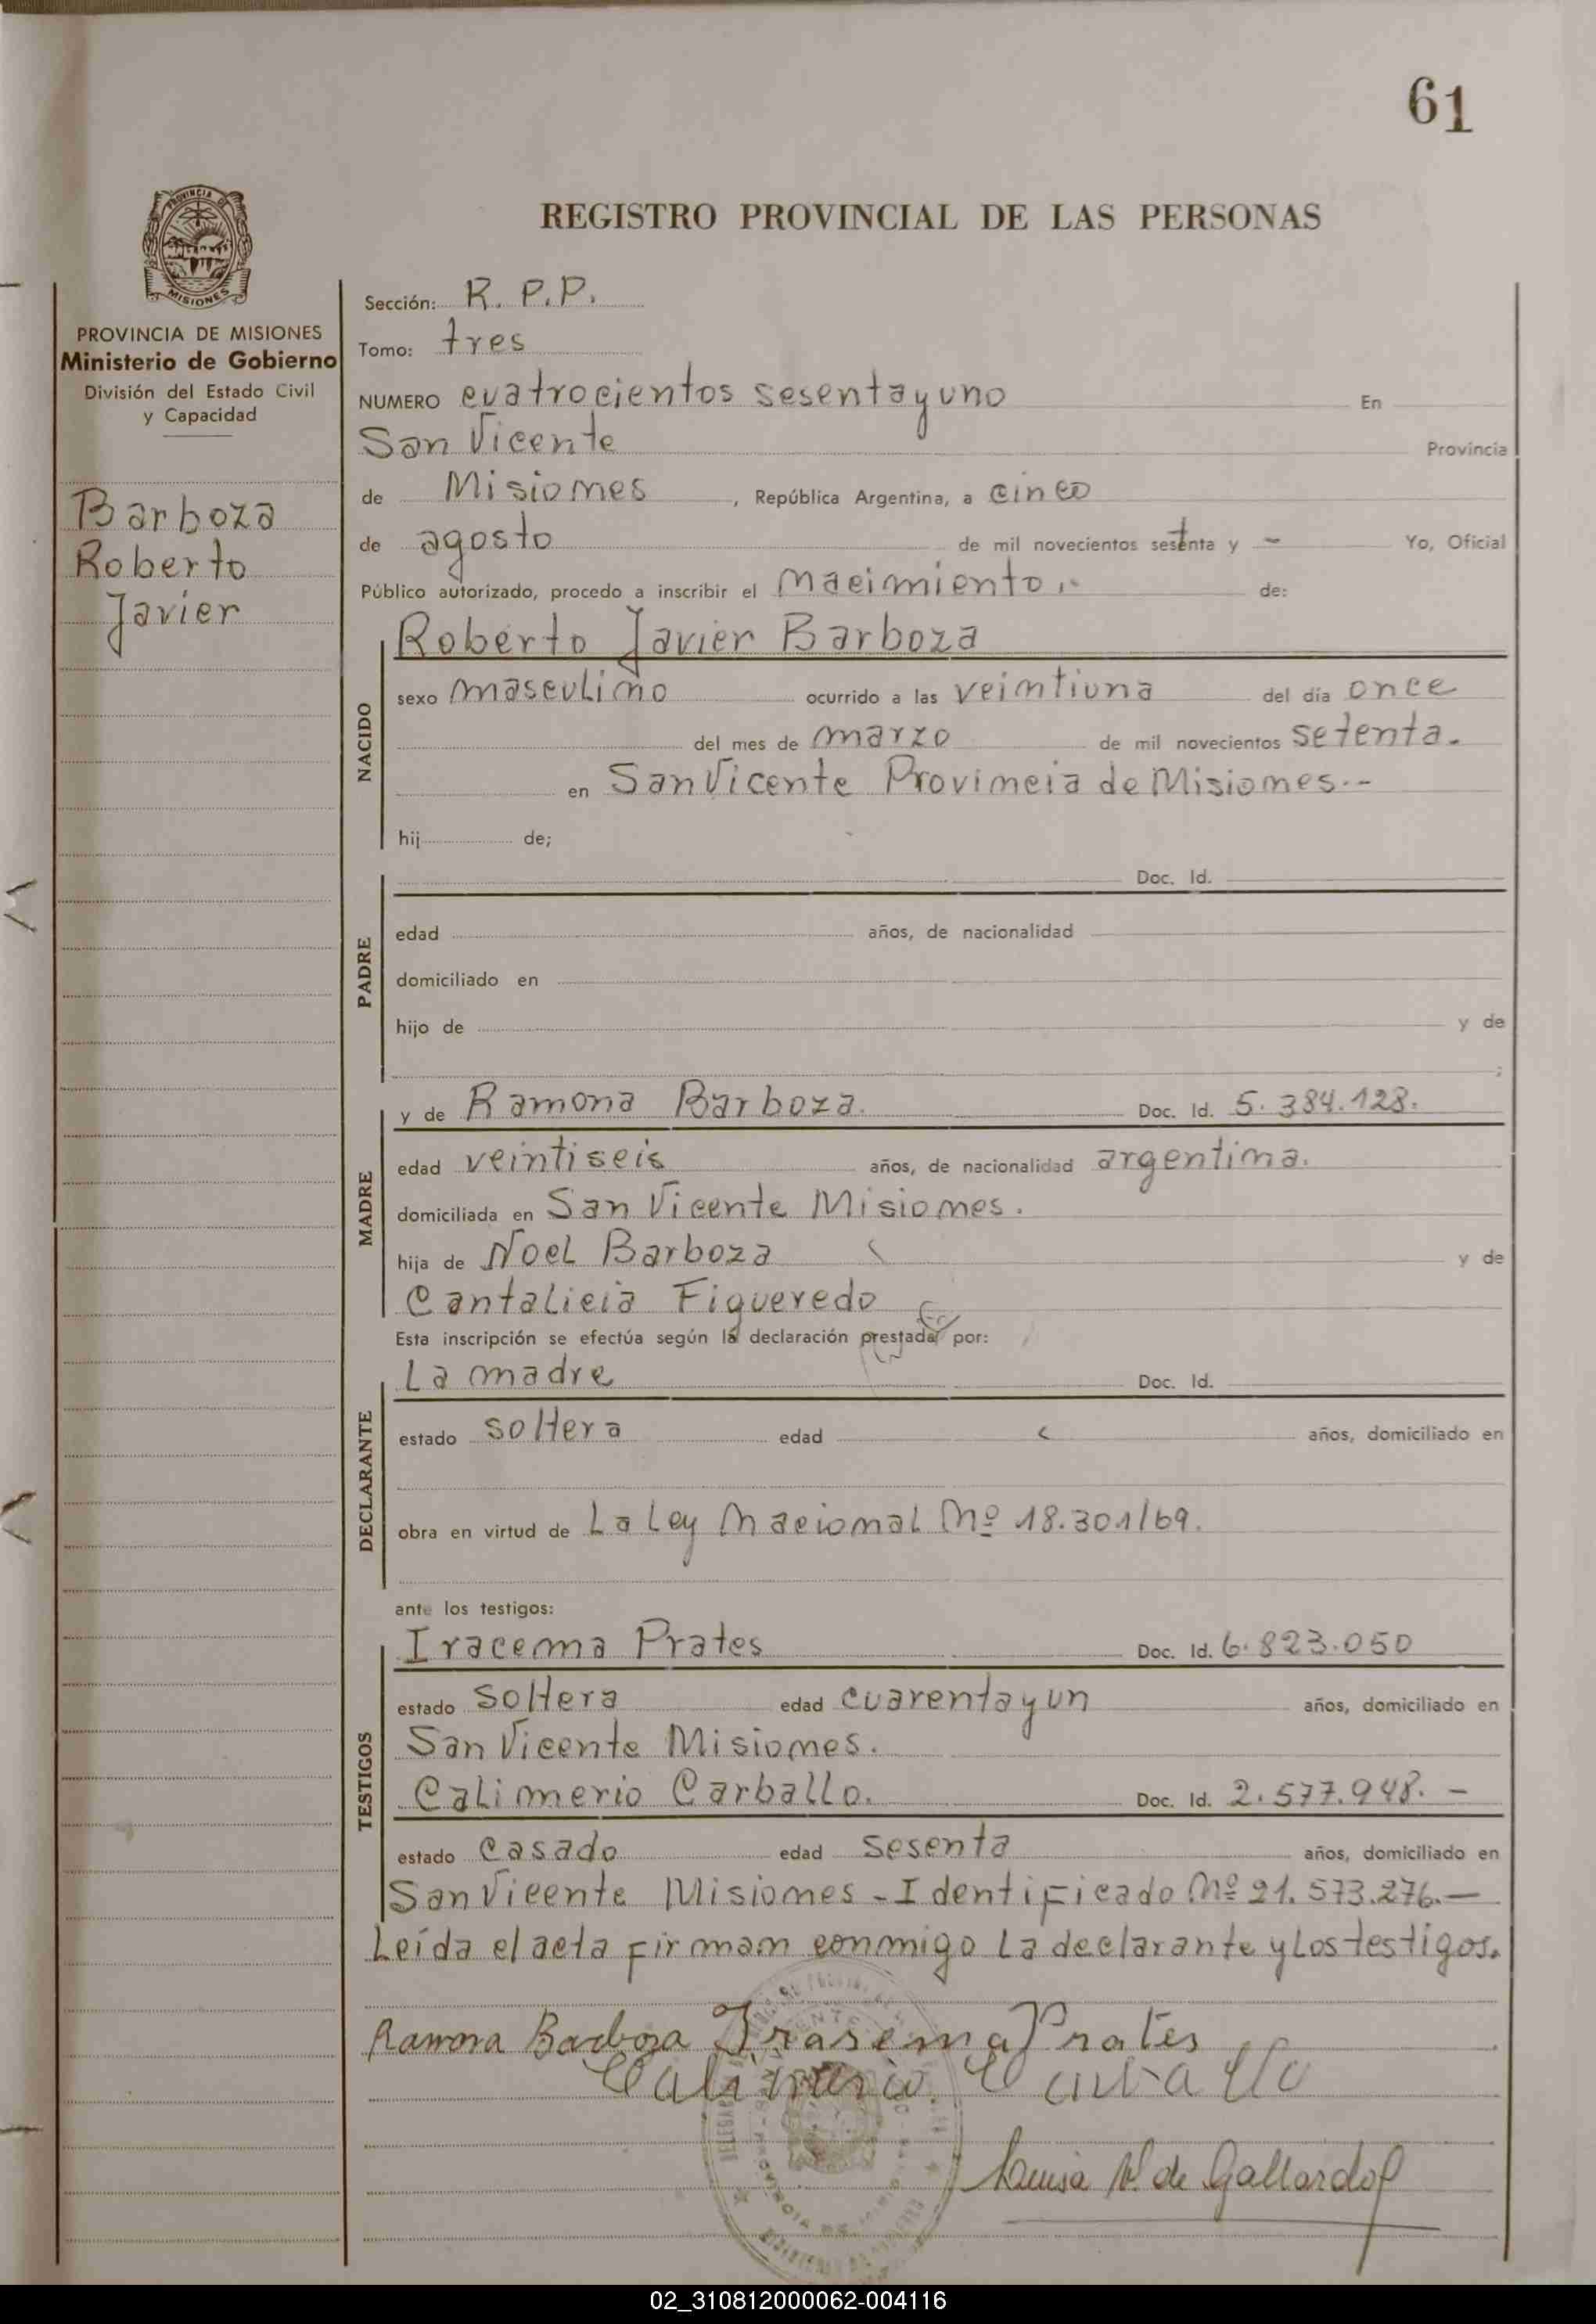 61
REGISTRO PROVINCIAL DE LAS PERSONAS
PROVINCIA DE
MISIONES
PROVINCIA DE MISIONES
Ministerio de Gobierno
División del Estado Civil
y Capacidad
Barboza
Roberto
Javier
Sección: R. P. P.
Tomo: tres
NUMERO cuatrocientos sesenta y uno En
San Vicente Provincia
de Misiones, República Argentina, a cinco
de agosto de mil novecientos setenta y - Yo, Oficial
Público autorizado, procedo a inscribir el nacimiento.- de:
NACIDO
Roberto Javier Barboza
sexo masculino ocurrido a las veintiuna del día once
del mes de marzo de mil novecientos setenta.
en San Vicente Provincia de Misiones.-
hij de;
PADRE
Doc. Id.
edad años, de nacionalidad
domiciliado en
hijo de y de
;
MADRE
y de Ramona Barboza. Doc. Id. 5.384.128.
edad veintiseis años, de nacionalidad argentina.
domiciliada en San Vicente Misiones.
hija de Noel Barboza y de
Cantalicia Figueredo
Esta inscripción se efectúa según la declaración prestada por:
DECLARANTE
La madre Doc. Id.
estado soltera edad años, domiciliado en
obra en virtud de La Ley Nacional Nº 18.301/69.
ante los testigos:
TESTIGOS
Iracema Prates Doc. Id. 6.823.050
estado soltera edad cuarenta y un años, domiciliado en
San Vicente Misiones.
Calimerio Carballo. Doc. Id. 2.577.948. -
estado casado edad sesenta años, domiciliado en
San Vicente Misiones - Identificado Nº 21.573.276.-
Leída el acta firman conmigo la declarante y los testigos.
Ramona Barboza Irasema Prates
Calimerio Carballo
de Gallardo
02_310812000062-004116